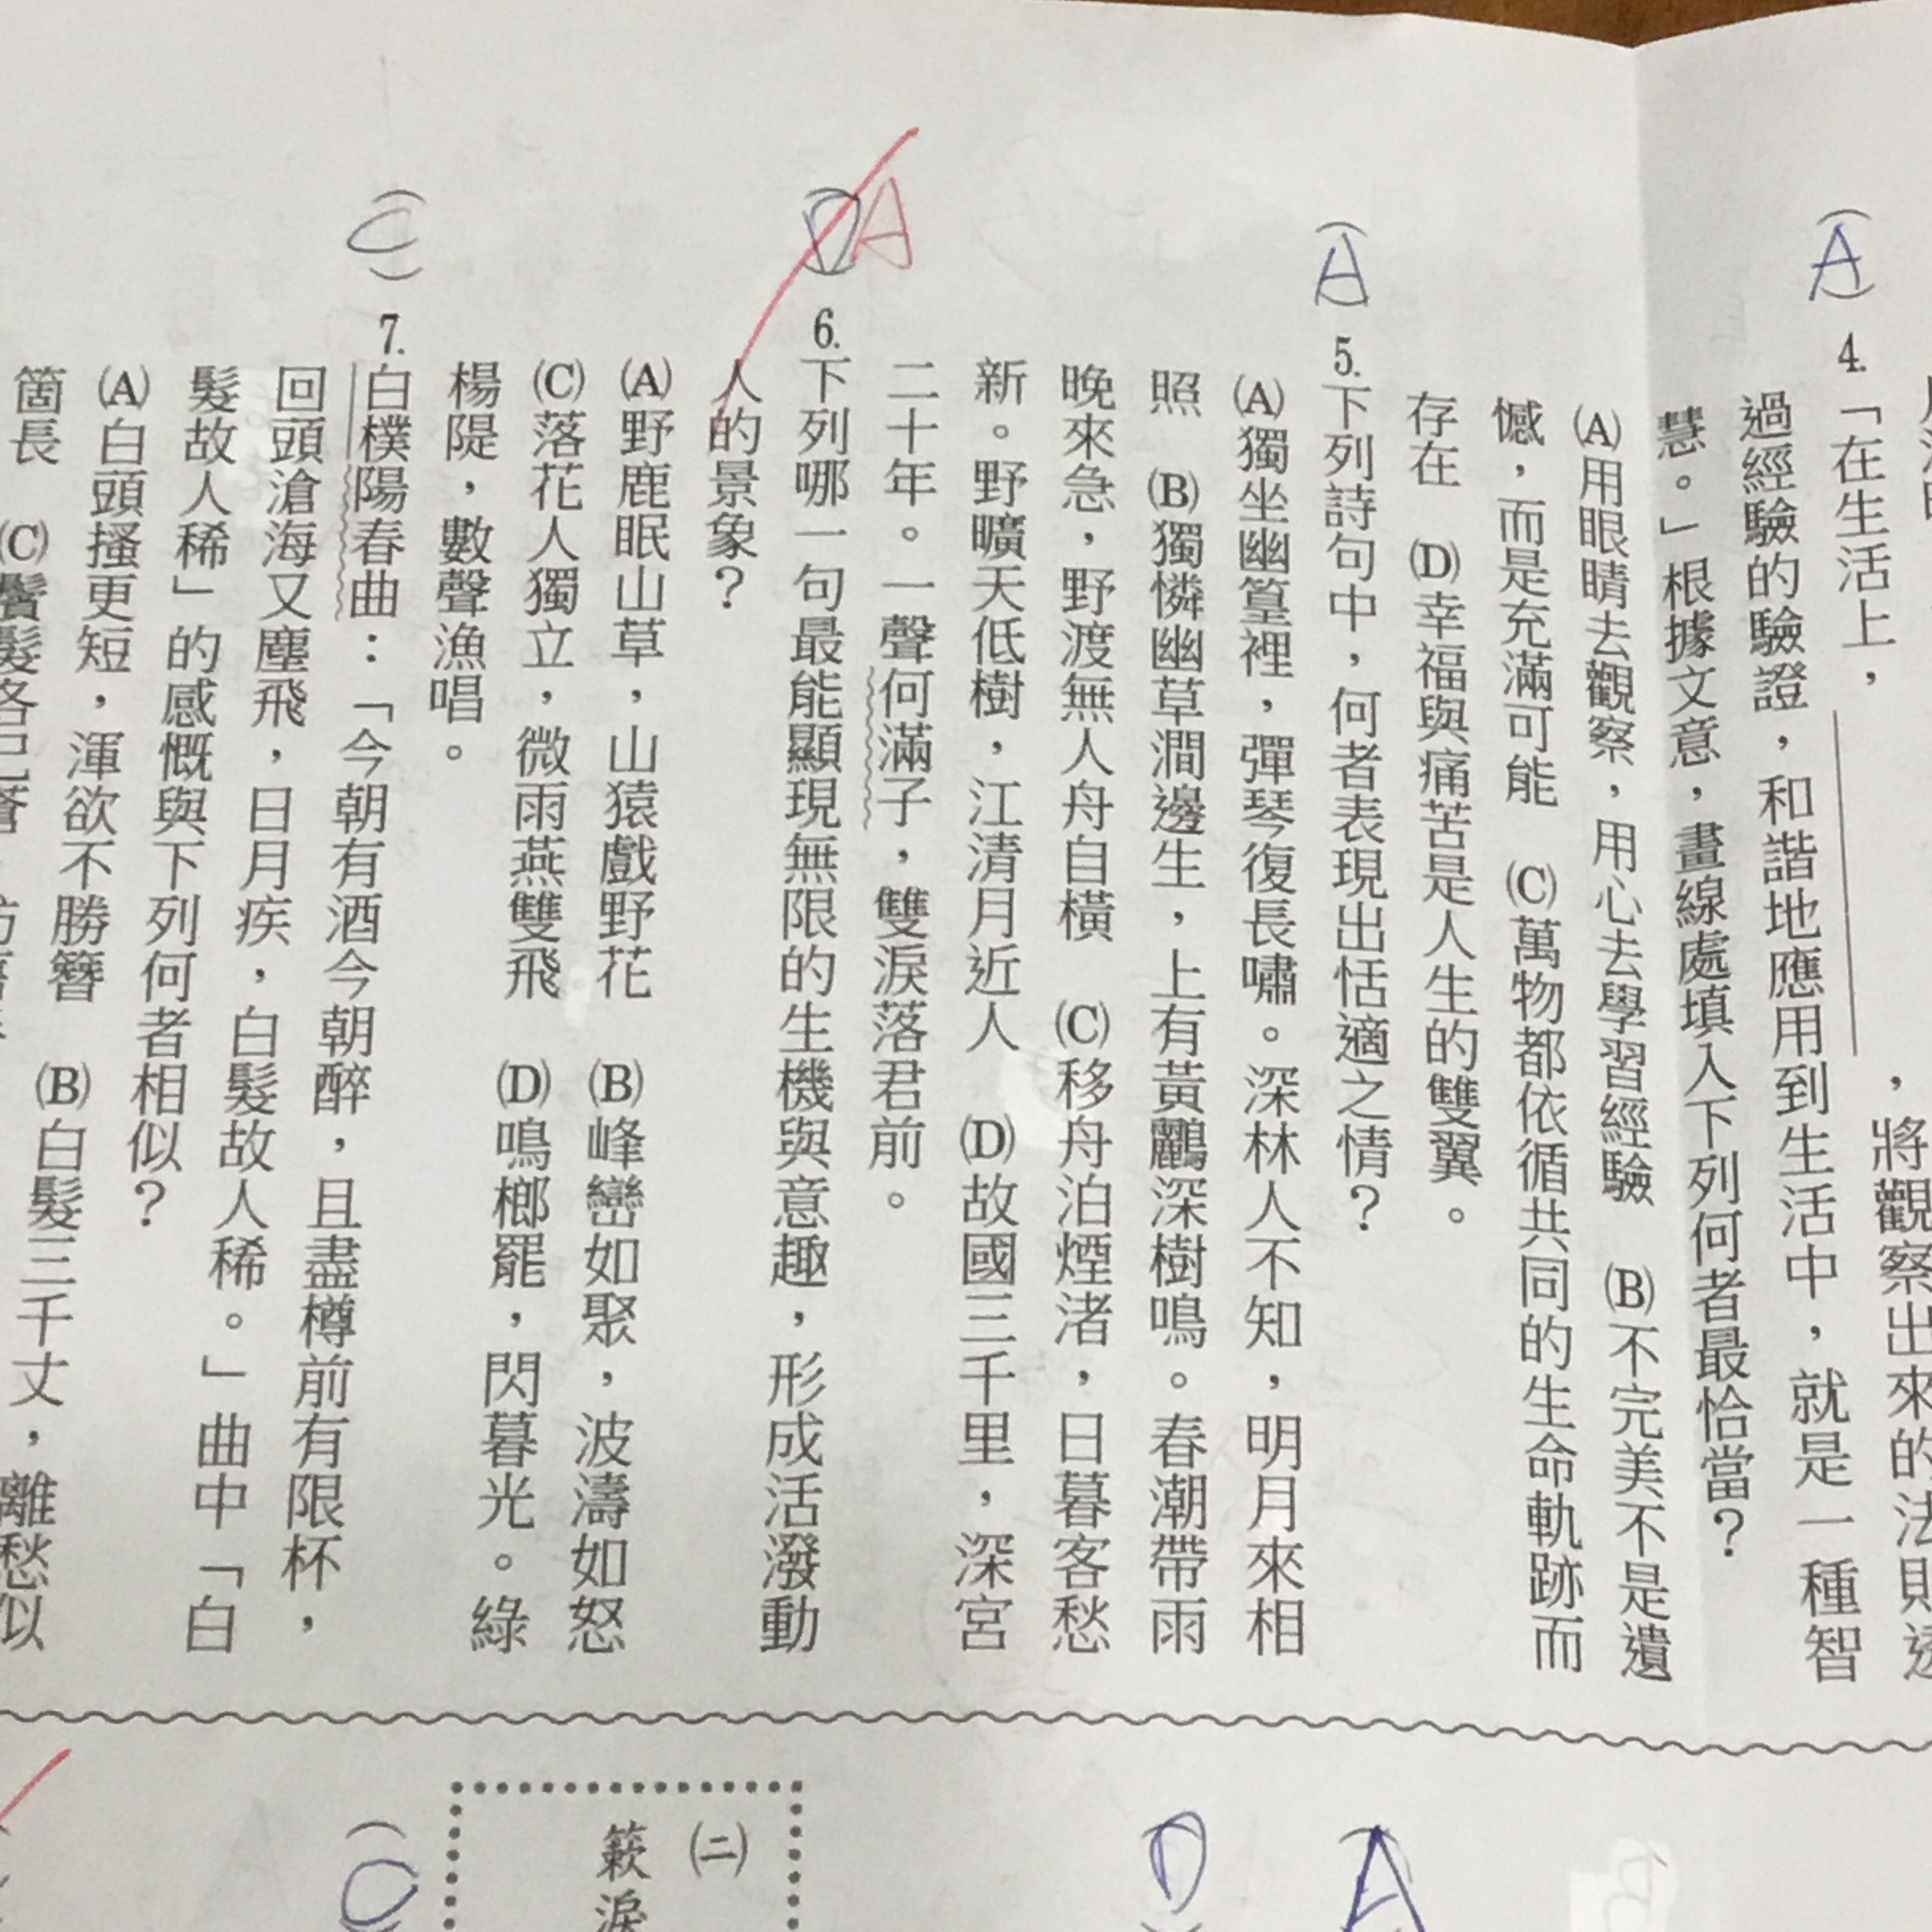 ，將觀察出來的法則透
(A) 4.「在生活上，
過經驗的驗證，和諧地應用到生活中，就是一種智
慧。」根據文意，畫線處填入下列何者最恰當？
(A)用眼睛去觀察，用心去學習經驗　(B)不完美不是遺
憾，而是充滿可能　(C)萬物都依循共同的生命軌跡而
存在　(D)幸福與痛苦是人生的雙翼。
(A) 5.下列詩句中，何者表現出恬適之情？
(A)獨坐幽篁裡，彈琴復長嘯。深林人不知，明月來相
照　(B)獨憐幽草澗邊生，上有黃鸝深樹鳴。春潮帶雨
晚來急，野渡無人舟自橫　(C)移舟泊煙渚，日暮客愁
新。野曠天低樹，江清月近人　(D)故國三千里，深宮
二十年。一聲何滿子，雙淚落君前。
(D)A 6.下列哪一句最能顯現無限的生機與意趣，形成活潑動
人的景象？
(A)野鹿眠山草，山猿戲野花　(B)峰巒如聚，波濤如怒
(C)落花人獨立，微雨燕雙飛　(D)鳴榔罷，閃暮光。綠
楊隄，數聲漁唱。
(C) 7.白樸陽春曲：「今朝有酒今朝醉，且盡樽前有限杯，
回頭滄海又塵飛，日月疾，白髮故人稀。」曲中「白
髮故人稀」的感慨與下列何者相似？
(A)白頭搔更短，渾欲不勝簪　(B)白髮三千丈，離愁似
箇長　(C)鬢髮各已蒼
A
D
(二)
簌淚
C